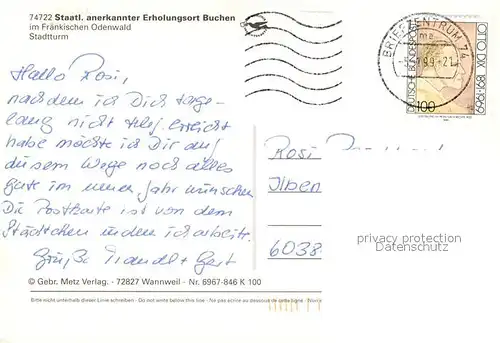 74722 Staatl. anerkannter Erholungsort Buchen
im Fränkischen Odenwald
Stadtturm
BRIEFZENTRUM 74
99-21
DEUTSCHE BUNDESPOST
100
OTTO DIX 1891-1969
Hallo Rosi,
nachdem ich Dich tage-
lang nicht telf. erreicht
habe möchte ich Dir auf
diesem Wege noch alles
gute im neuen Jahr wünschen
Die Postkarte ist von dem
Städtchen in dem ich arbeite.
Grüße
Rosi
6038
privacy protection
Datenschutz
© Gebr. Metz Verlag. - 72827 Wannweil - Nr. 6967-846 K 100
Bitte nicht unterhalb dieser Linie schreiben - Do not write below this line - Ne pas écrire au dessous de cette ligne